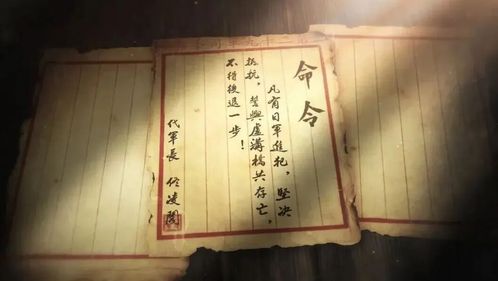 命令
凡有日軍進犯，堅决
抵抗，誓與盧溝橋共存亡，
不得後退一步！
代軍長 佟凌閣